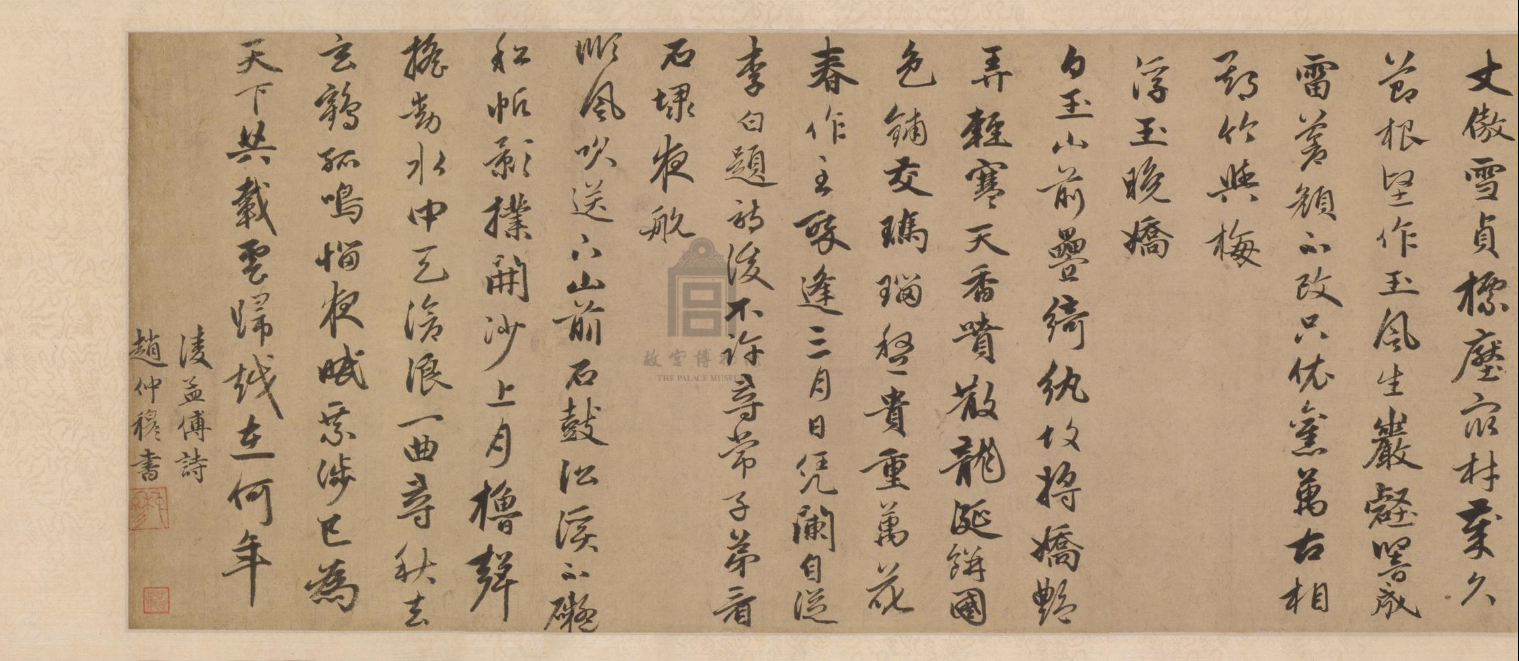 丈傲雪貞標壓材歲久
節根堅作玉風生巖壑響成
雷蒼顏不改只依舊萬古相
期竹與梅
浮玉晚嬌
白玉山前疊綺紈故將嬌艷
弄輕寒天香噴散龍涎餅國
色鋪交瑪瑙盤貴重萬花
春作主逢三月日凭闌自從
李白題詩後不許尋常子弟看
石埭夜航
順風吹送下山前石鼓松溪不礙
船帆影撲開沙上月櫓聲
搖動水中天滄浪一曲尋秋去
玄鶴孤鳴惱夜眠涉已為
天下共載雲歸越在何年
凌孟傅詩
趙仲穆書
故宮博物院
THE PALACE MUSEUM